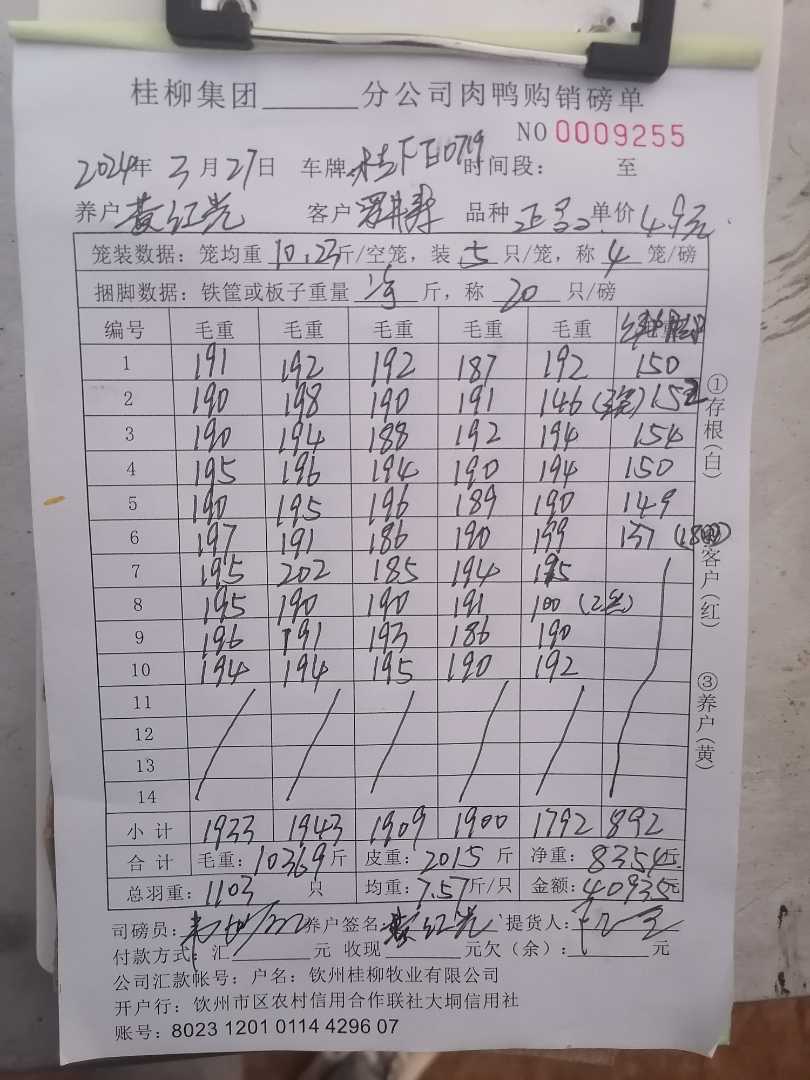 桂柳集团______分公司肉鸭购销磅单
NO 0009255
2024年 3月27日 车牌 桂 0719 时间段: 至
养户 黄红光 客户 品种 正 单价 4.9元
笼装数据:笼均重 10.23 斤/空笼,装 5 只/笼,称 4 笼/磅
捆脚数据:铁筐或板子重量 斤,称 20 只/磅
编号 毛重 毛重 毛重 毛重 毛重
1 191 192 192 187 192 150
2 190 198 190 191 146 (3笼) 152
3 190 194 188 192 194 154
4 195 196 194 190 194 150
5 190 195 196 189 190 149
6 197 191 186 190 199 137 (18只)
7 195 202 185 194 195
8 195 190 190 191 100 (2笼)
9 196 191 193 186 190
10 194 194 195 190 192
11
12
13
14
小计 1933 1943 1909 1900 1792 892
合计 毛重:10369斤 皮重:2015斤 净重:8354斤
总羽重:1103 只 均重:7.57斤/只 金额:40935元
司磅员: 养户签名 黄红光 提货人:
付款方式:汇______元 收现______元欠(余):______元
公司汇款帐号:户名:钦州桂柳牧业有限公司
开户行:钦州市区农村信用合作联社大垌信用社
账号:8023 1201 0114 4296 07
①存根(白)
客户(红)
③养户(黄)